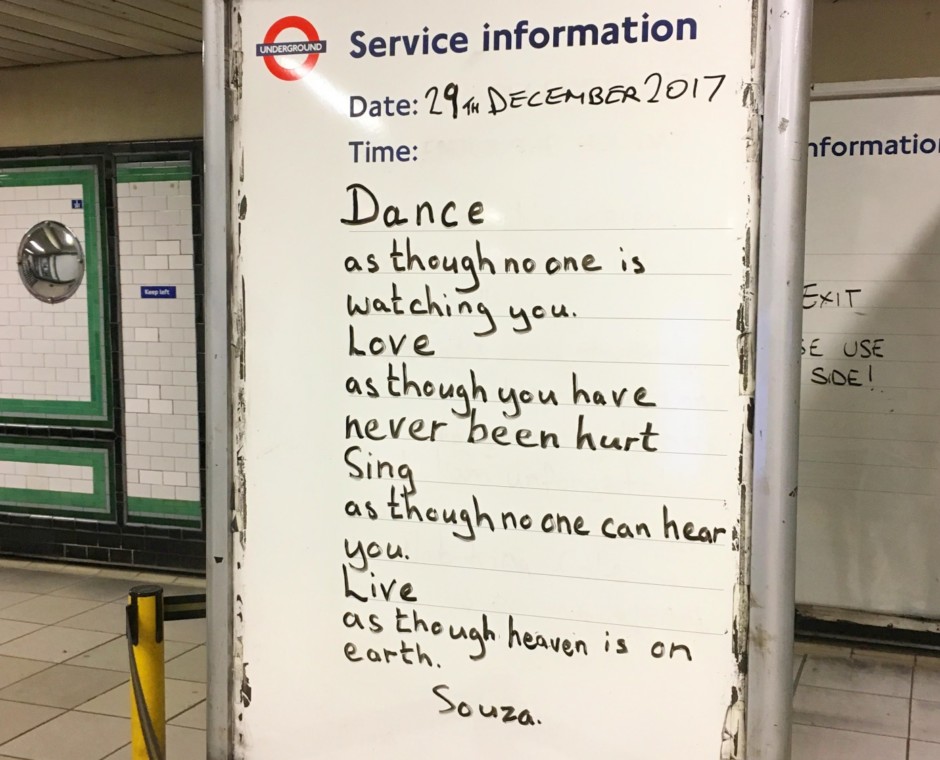 UNDERGROUND
Service information
Date: 29TH DECEMBER 2017
Time:
Dance
as though no one is
watching you.
Love
as though you have
never been hurt
Sing
as though no one can hear
you.
Live
as though heaven is on
earth.
Souza.
Keep left
EXIT
USE
SIDE!